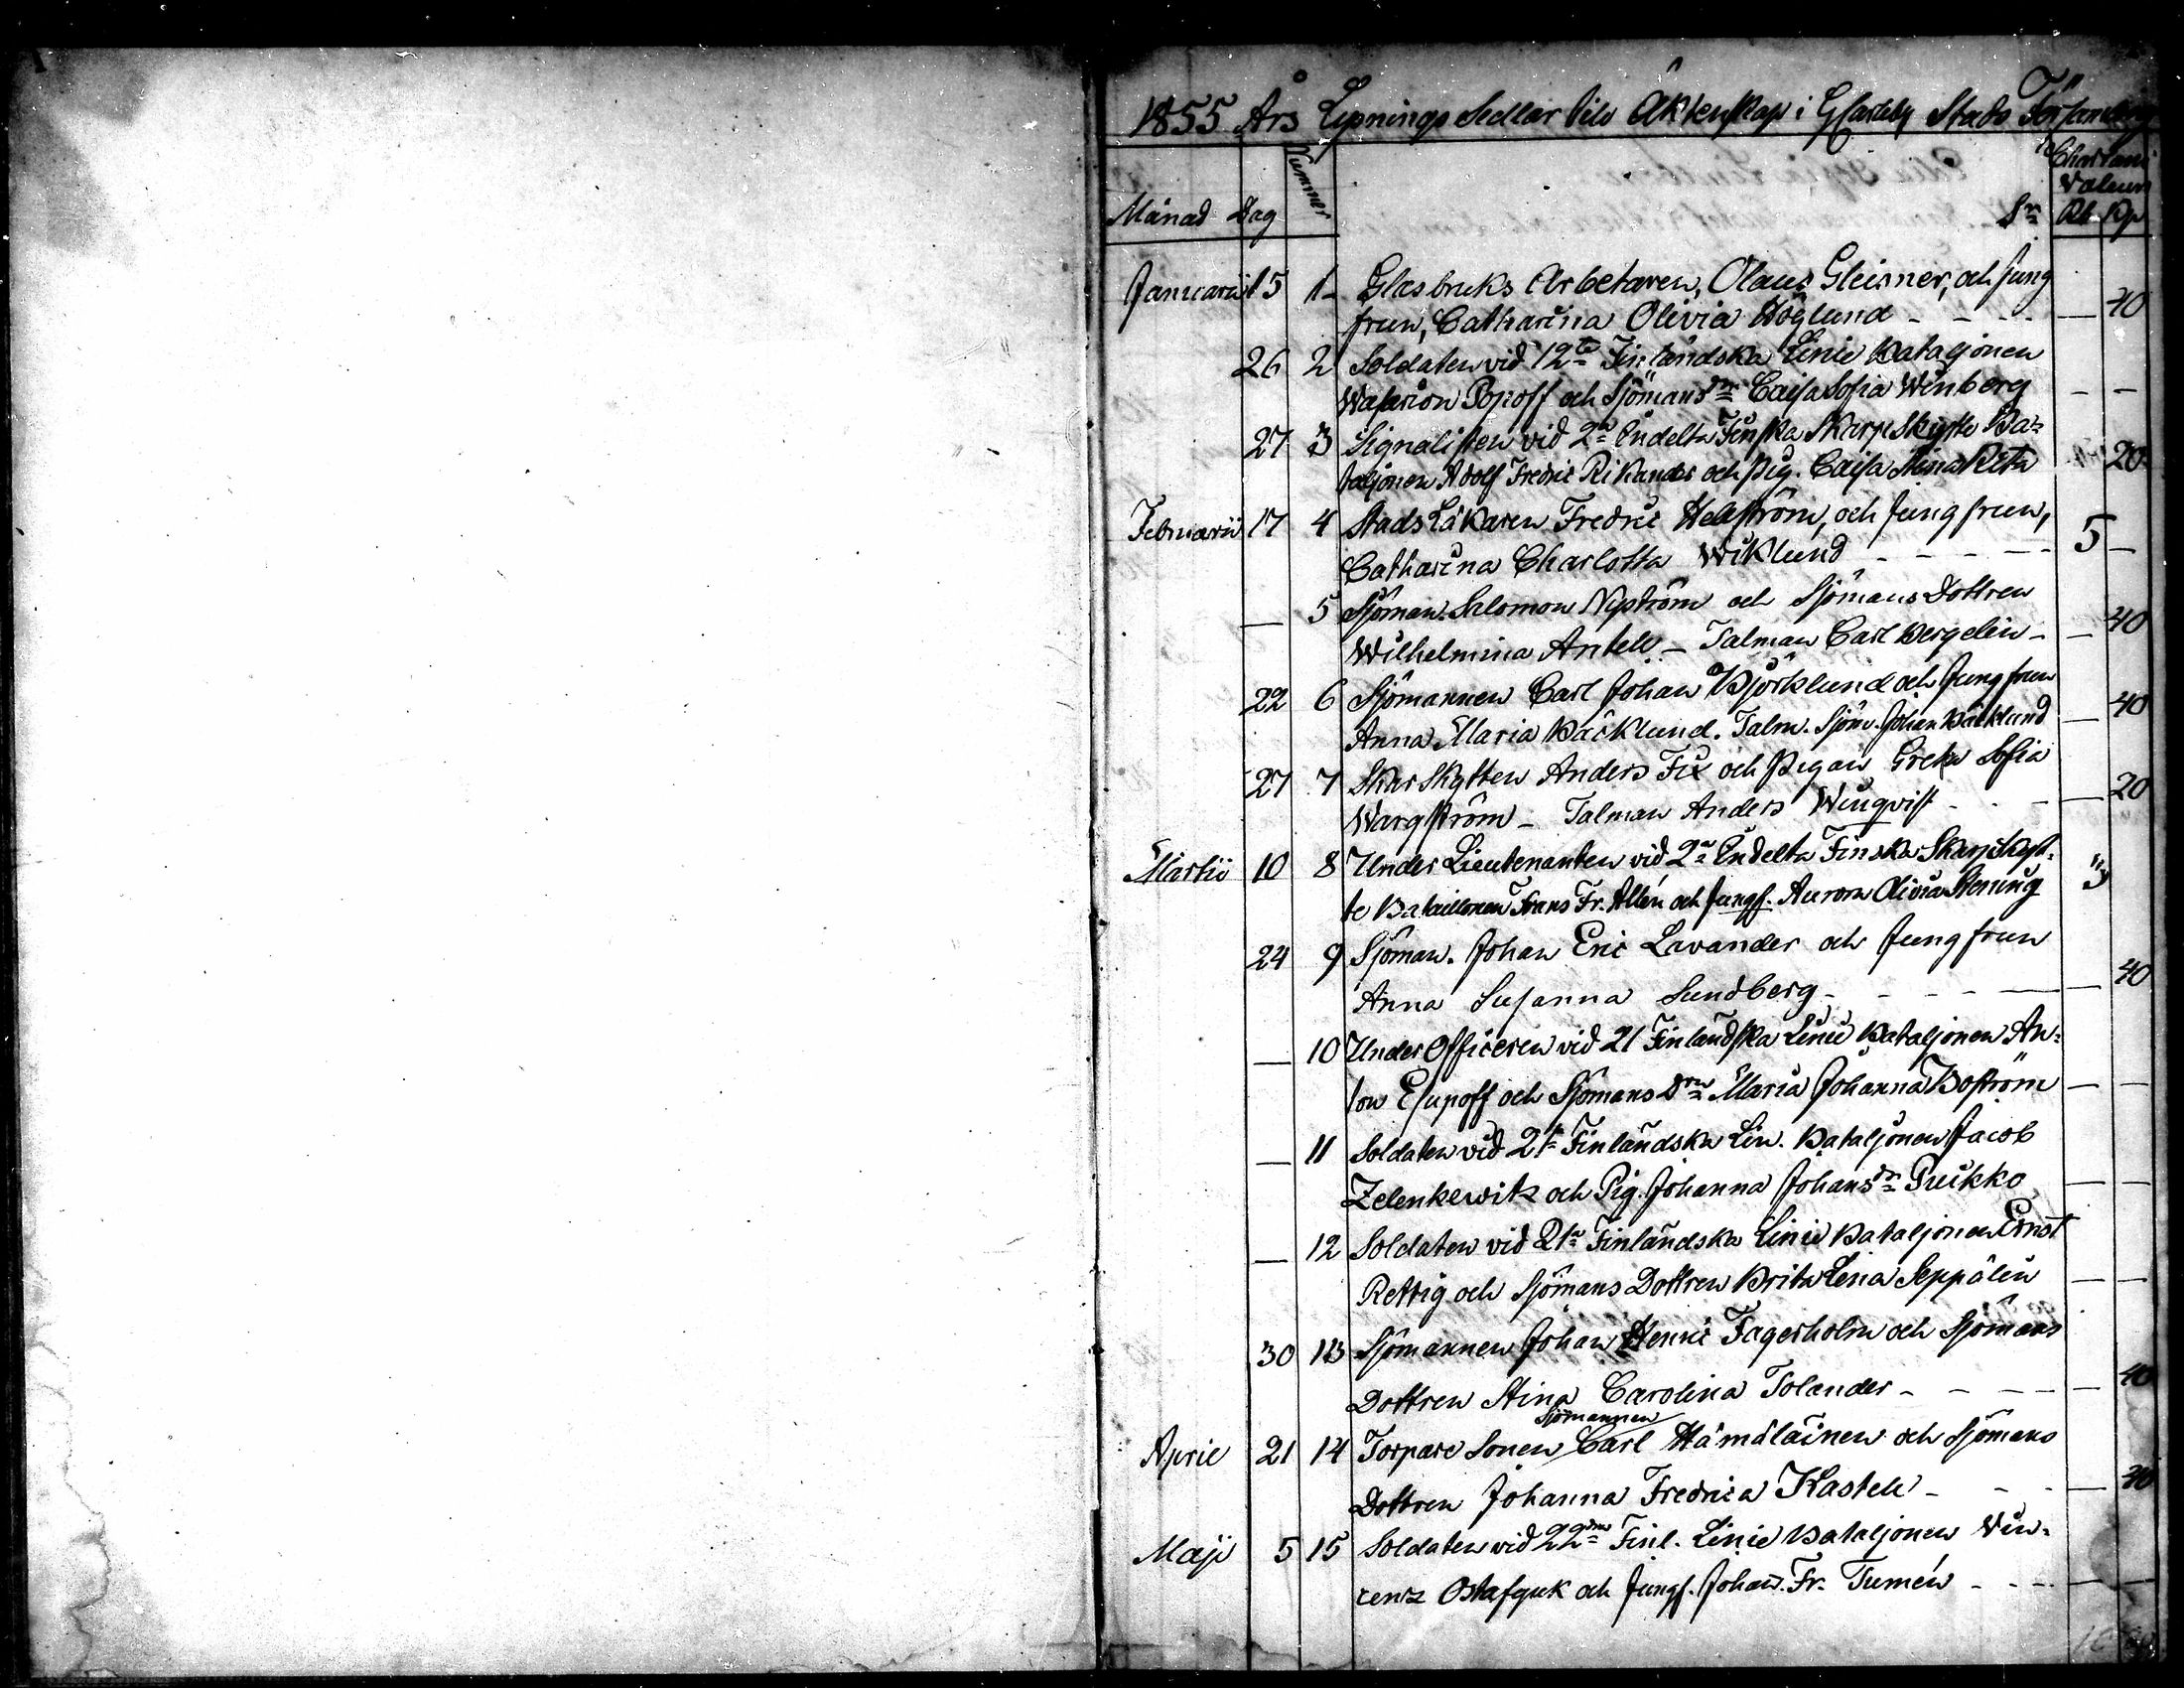 1855 Års Lysnings Sedlar till Äktenskap i GCarleby Stads Församling
Månad Dag Nummer Sr Rb Kp
Januarii 15 1 Glasbruks Arbetaren, Olaus Gleisner, och Jung
frun, Catharina Olivia Höglund - - - - — 40
26 2 Soldaten vid 12te Finländska Linie Bataljonen
Wasarion Popoff och Sjömansdrn Caisa Sofia Winberg — —
27 3 Signalisten vid 2a Indelta Finska Skarp Skytte Ba=
taljonen Adolf Fredric Rikander och Pig. Caisa Stina Rita 20
Februarii 17 4 Stads Läkaren Fredric Hellström, och Jungfrun,
Catharina Charlotta Wiklund - - - - - 5 —
— 5 Sjöman. Salomon Nyström och Sjömans Dottren
Wilhelmina Antell - Talman Carl Bergelin - — 40
22 6 Sjömannen Carl Johan Björklund och Jungfrun
Anna Maria Bäcklund. Talm. Sjöm. Johan Bäcklund — 40
27 7 Skar Skytten Anders Fix och Pigan Greta Sofia
Wargström - Talman Anders Wingvist - - - — 20
Martii 10 8 Under Lieutenanten vid 2a Indelta Finska Skarp Skyt=
te Bataillonen Frans Fr. Allén och Jungf. Aurora Olivia Stening 3
24 9 Sjöman. Johan Eric Lavander och Jungfrun
Anna Susanna Sundberg - - - - — 40
— 10 Under Officeren vid 21 Finländska Linie Bataljonen An=
ton Esupoff och Sjömans Drn Maria Johanna Boström — —
— 11 Soldaten vid 21a Finländska Lin. Bataljonen Jacob
Zelenkewitz och Pig. Johanna Johansdr Puikko — —
— 12 Soldaten vid 21a Finländska Linie Bataljonen Ernst
Rettig och Sjömans Dottren Brita Lena Seppälin — —
30 13 Sjömannen Johan Henric Fagerholm och Sjömans
Dottren Stina Carolina Tolander - - - - — 40
Sjömannen
April 21 14 Torpare Sonen Carl Hämäläinen och Sjömans
Dottren Johanna Fredrica Kastell - - - — 40
Maji 5 15 Soldaten vid 22dra Finl. Linie Bataljonen Vin=
cenz Ostafguk och Jungf. Johan. Fr. Tumén - - - — —